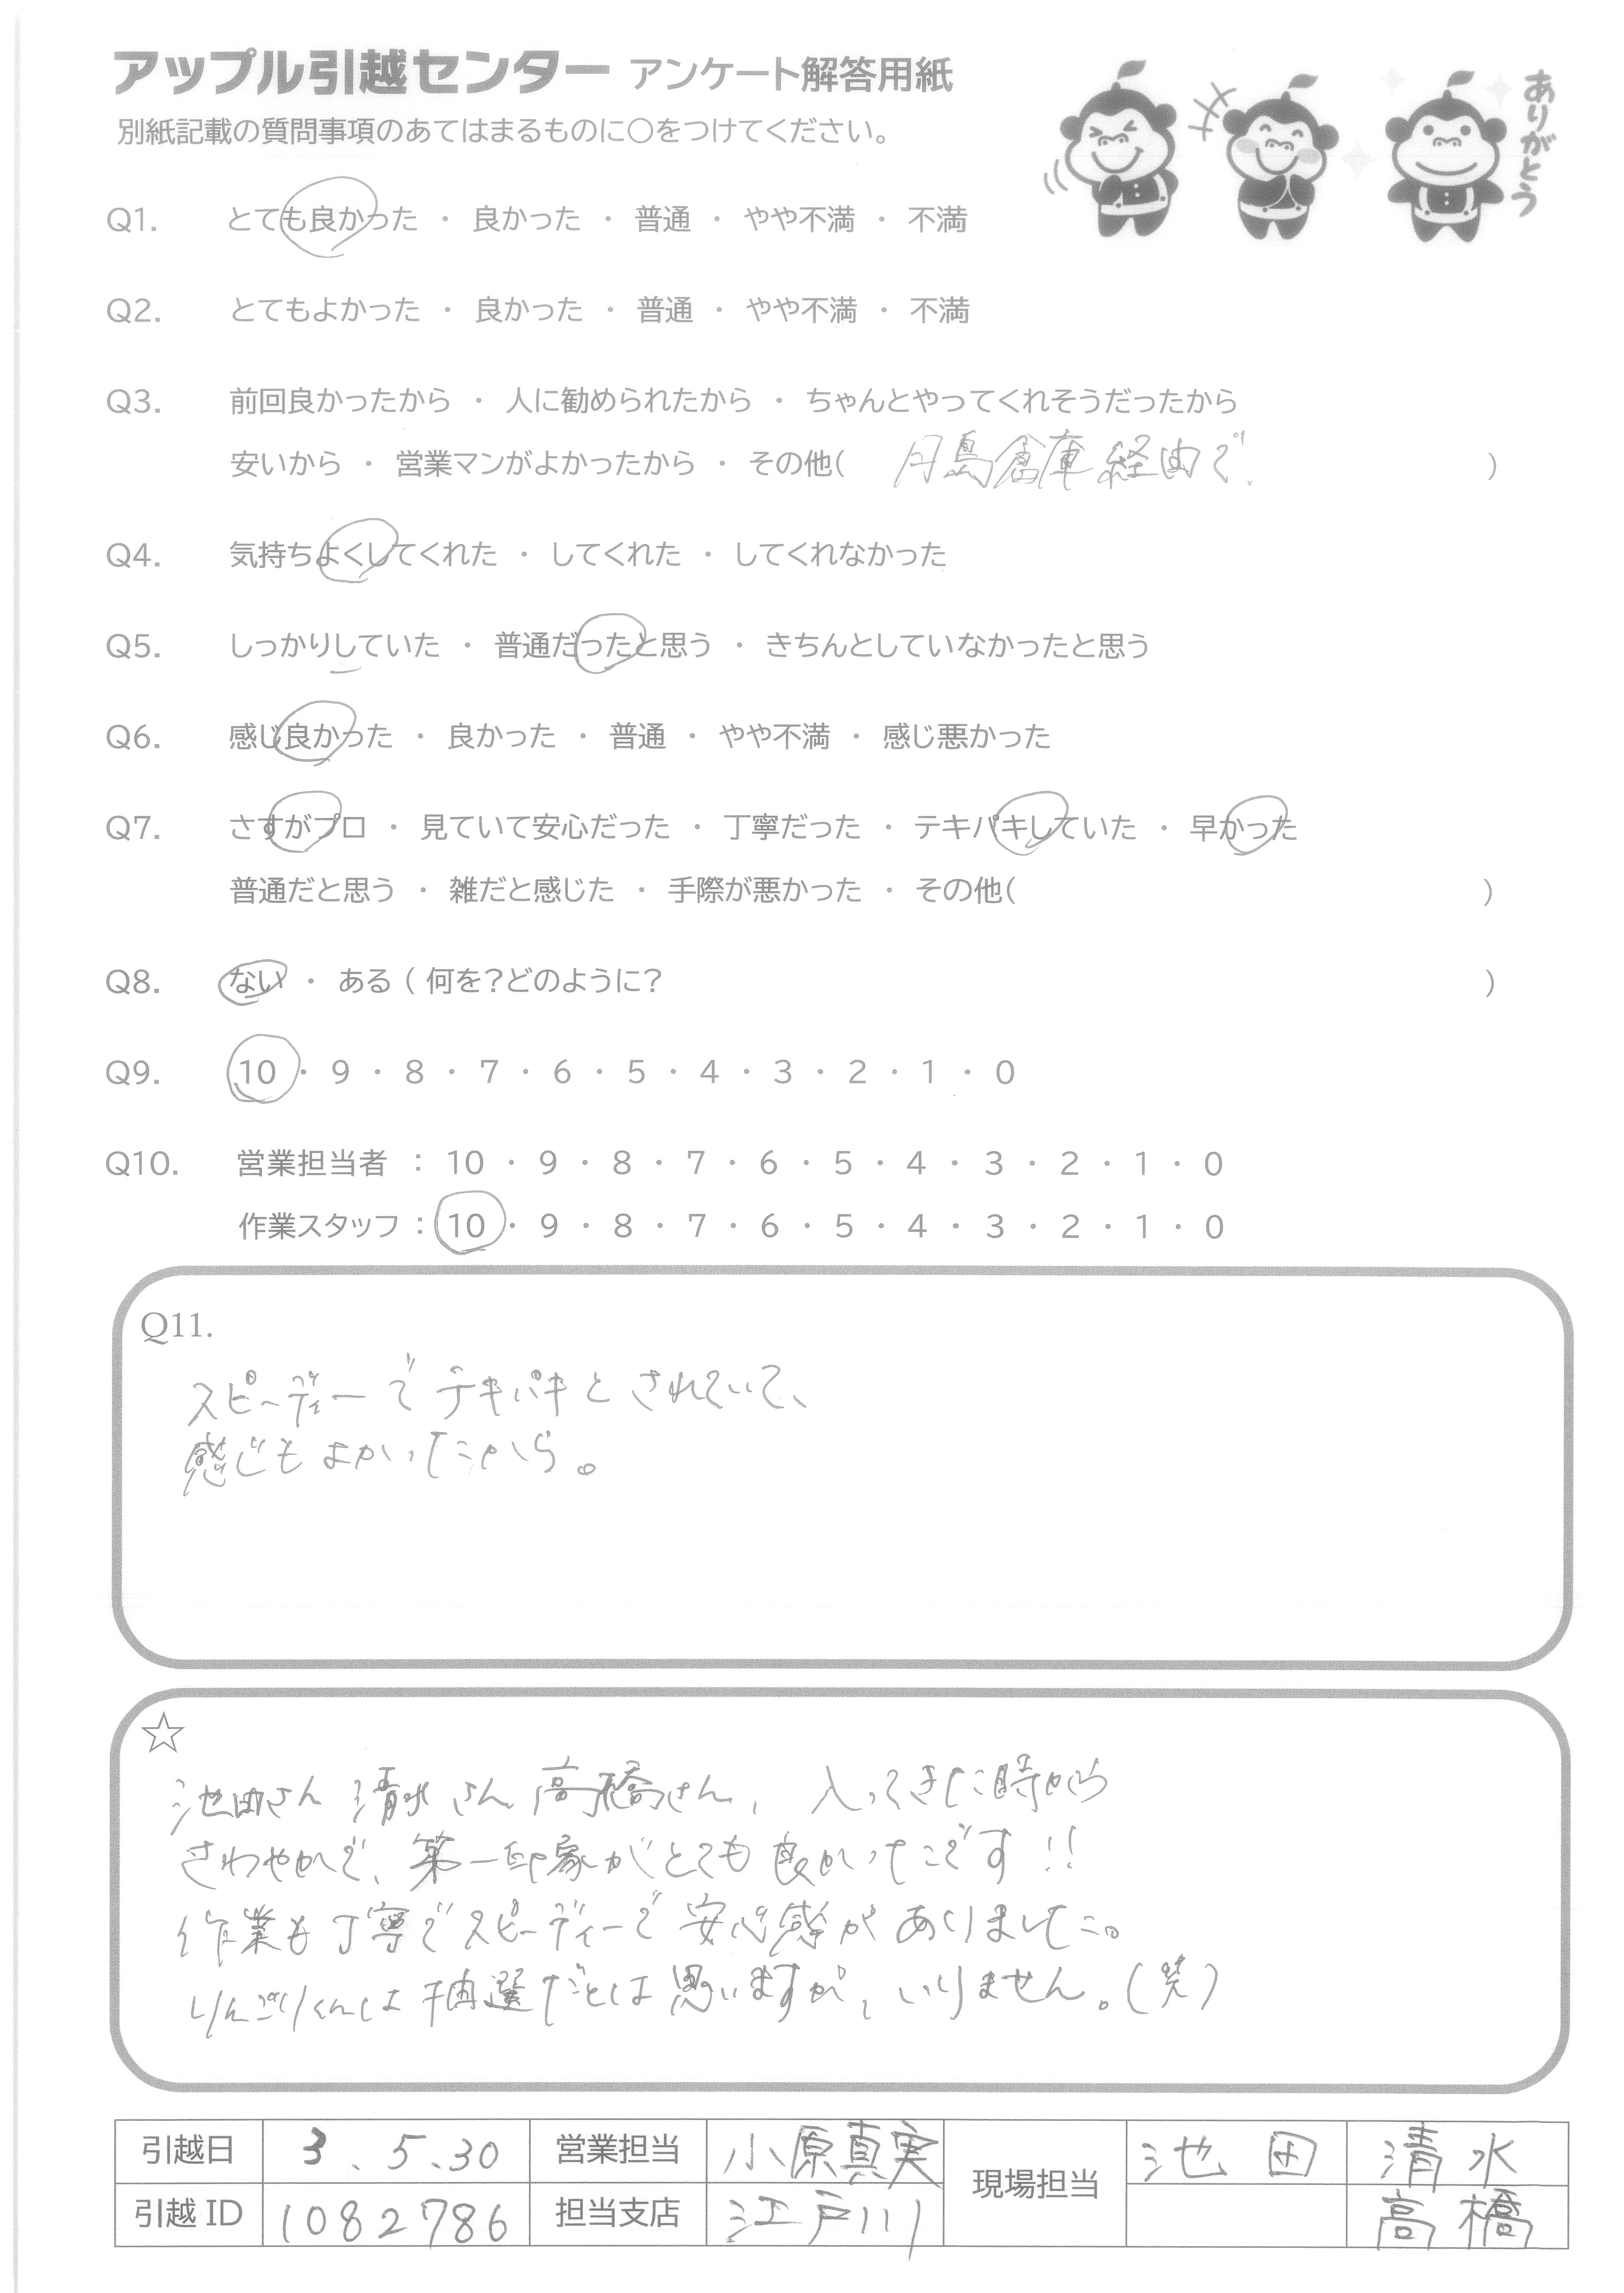 アップル引越センター アンケート解答用紙
別紙記載の質問事項のあてはまるものに〇をつけてください。
ありがとう
Q1. とても良かった ・ 良かった ・ 普通 ・ やや不満 ・ 不満
Q2. とてもよかった ・ 良かった ・ 普通 ・ やや不満 ・ 不満
Q3. 前回良かったから ・ 人に勧められたから ・ ちゃんとやってくれそうだったから
安いから ・ 営業マンがよかったから ・ その他( 月島倉庫経由で。 )
Q4. 気持ちよくしてくれた ・ してくれた ・ してくれなかった
Q5. しっかりしていた ・ 普通だったと思う ・ きちんとしていなかったと思う
Q6. 感じ良かった ・ 良かった ・ 普通 ・ やや不満 ・ 感じ悪かった
Q7. さすがプロ ・ 見ていて安心だった ・ 丁寧だった ・ テキパキしていた ・ 早かった
普通だと思う ・ 雑だと感じた ・ 手際が悪かった ・ その他( )
Q8. ない ・ ある ( 何を?どのように? )
Q9. 10 ・ 9 ・ 8 ・ 7 ・ 6 ・ 5 ・ 4 ・ 3 ・ 2 ・ 1 ・ 0
Q10. 営業担当者 : 10 ・ 9 ・ 8 ・ 7 ・ 6 ・ 5 ・ 4 ・ 3 ・ 2 ・ 1 ・ 0
作業スタッフ : 10 ・ 9 ・ 8 ・ 7 ・ 6 ・ 5 ・ 4 ・ 3 ・ 2 ・ 1 ・ 0
Q11.
スピーディーでテキパキとされていて、
感じもよかったから。
☆
池田さん 清水さん 高橋さん、入ってきた時から
さわやかで、第一印象がとても良かったです!!
作業も丁寧でスピーディーで安心感がありました。
りんごりくんは抽選だとは思いますが、いりません。(笑)
引越日 3.5.30 営業担当 小原真実 現場担当 池田 清水
引越 ID 1082786 担当支店 江戸川 高橋